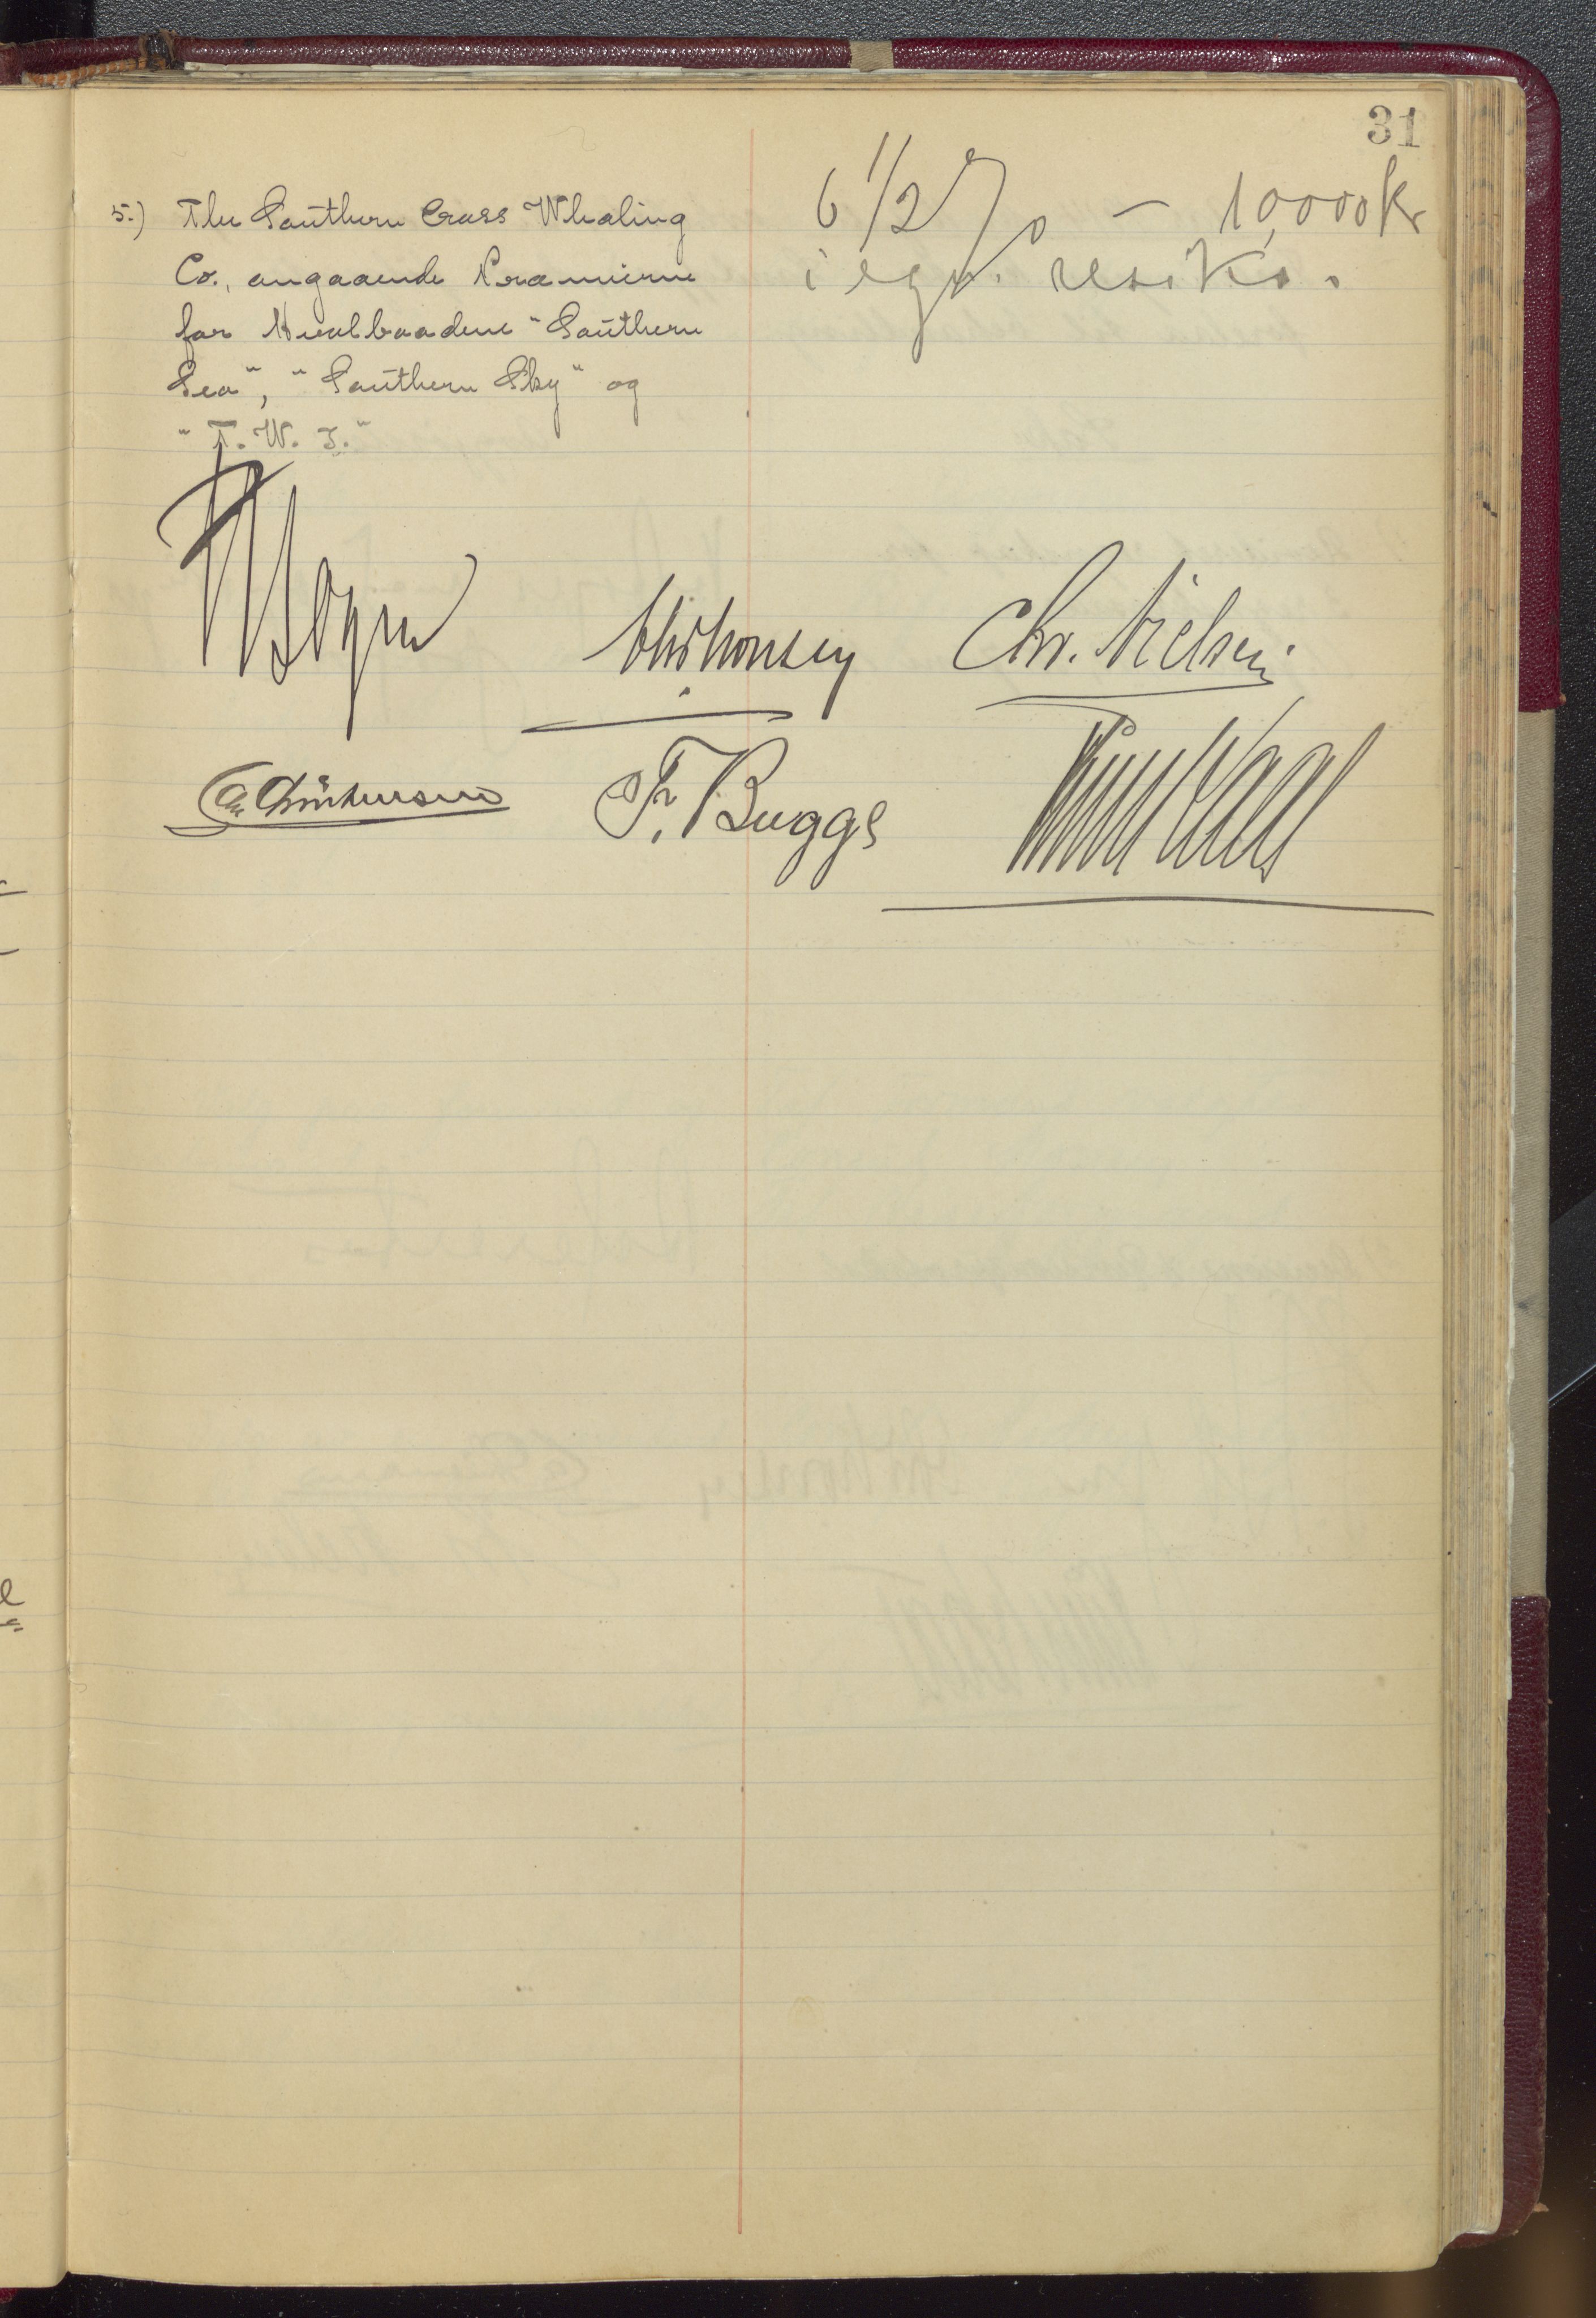 31
5.) The Southern Cross Whaling
Co., angaaende Præmierne
for Hvalbaadene "Southern
Sea", "Southern Sky" og
"T. W. I."
6 1/2 % — 10,000 kr
i egn. resiko.
Chr. Nielsen
Fr. Bugge